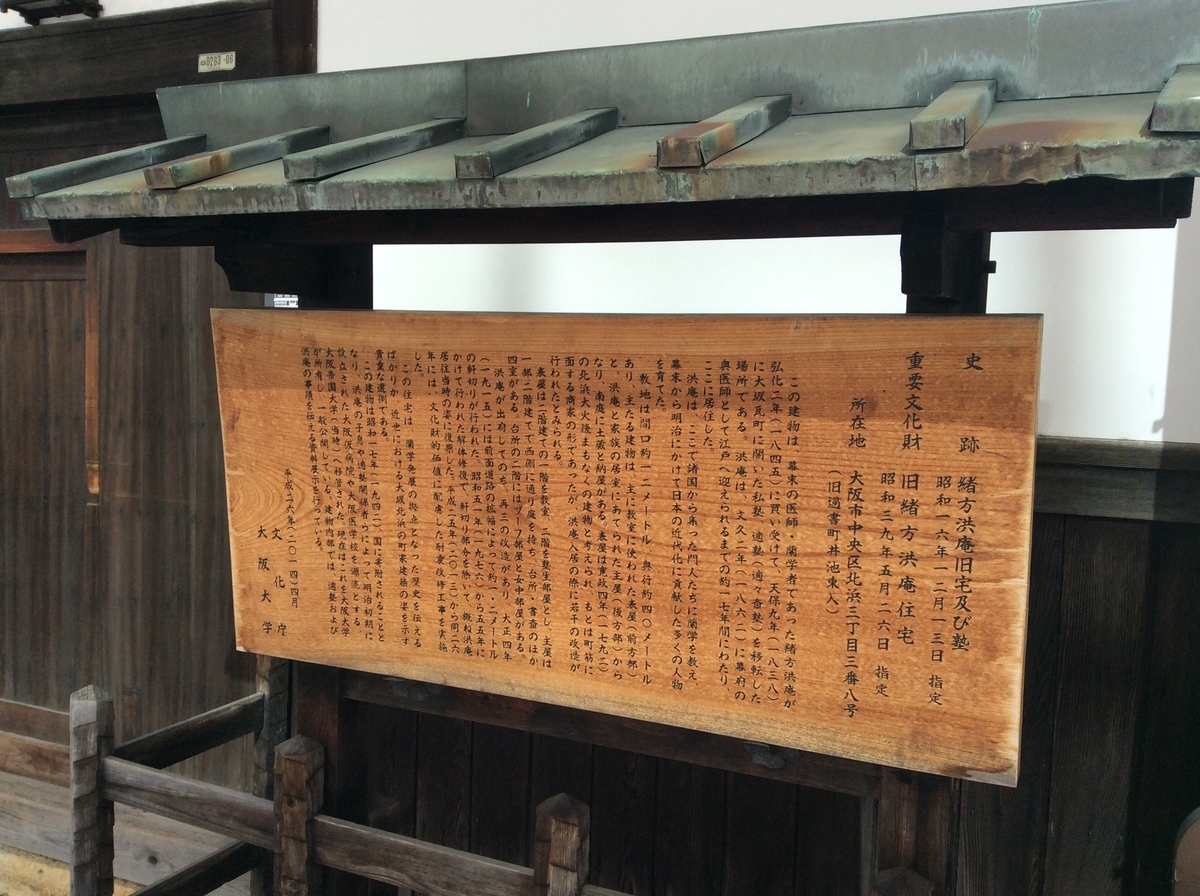 史跡 緒方洪庵旧宅及び塾
昭和一六年一二月一三日 指定
重要文化財 旧緒方洪庵住宅
昭和三九年五月二六日 指定
所在地 大阪市中央区北浜三丁目三番八号
(旧過書町井池東入)
この建物は、幕末の医師・蘭学者であった緒方洪庵が
弘化二年(一八四五)に買い受けて、天保九年(一八三八)
に大坂瓦町に開いた私塾、適塾(適々斎塾)を移転した
場所である。洪庵は、文久二年(一八六二)に幕府の
奥医師として江戸へ迎えられるまでの約一七年間にわたり、
ここに居住した。
洪庵は、ここで諸国から集った門人たちに蘭学を教え、
幕末から明治にかけて日本の近代化に貢献した多くの人物
を育てた。
敷地は間口約一二メートル、奥行約四〇メートル
あり、主たる建物は、主に教室に使われた表屋(前方部)
と、洪庵と家族の居室にあてられた主屋(後方部)から
なり、南庭に土蔵と納屋がある。表屋は寛政四年(一七九二)
の北浜大火後まもなくの建物と考えられ、もとは町筋に
面する商家の形であったが、洪庵入居の際に若干の改造が
行われたとみられる。
表屋は二階建ての一階を教室、二階を塾生部屋とし、主屋は
一部二階建てで西側に通り庭を持ち、台所、書斎のほか
四室がある。台所の二階にはヅーフ部屋と女中部屋がある。
洪庵が出府してのち、再三の改造があり、大正四年
(一九一五)には前面道路の拡幅によって約一、二メートル
の軒切りが行われた。昭和五一年(一九七六)から五五年に
かけて行われた解体修復で、軒切り部分を除いて、概ね洪庵
居住当時の姿に復原した。平成二五年(二〇一三)から同二六
年には、文化財的価値に配慮した耐震改修工事を実施
した。
この住宅は、蘭学発展の拠点となった歴史を伝える
ばかりか、近世における大坂北浜の町家建築の姿を示す
貴重な遺例である。
この建物は昭和一七年(一九四二)国に寄附されることと
なり、洪庵の子息や適塾関係者らによって明治初期に
設立された大阪仮病院、大阪医学校を源流とする
大阪帝国大学(当時)へ移管された。現在はこれを大阪大学
が所有し、一般公開している。建物内部では、適塾および
洪庵の事蹟を伝える資料展示を行っている。
平成二六年(二〇一四)四月
文化庁
大阪大学